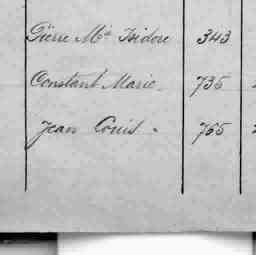 Pierre Me Isidore 343
Constant Marie 735
Jean Louis. 765